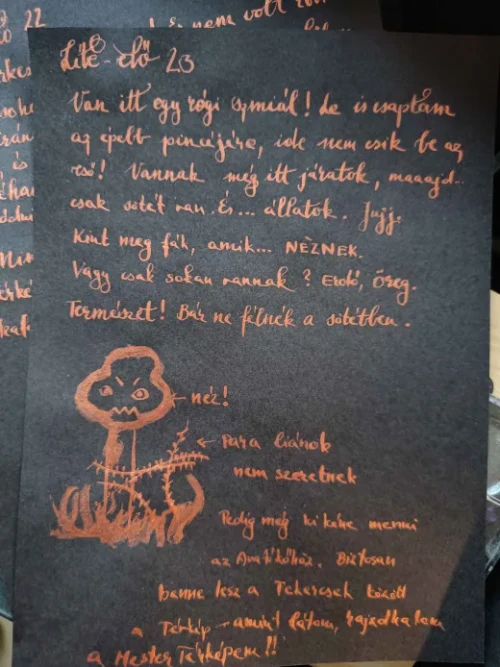 22
nem volt
elő 23
Van itt egy régi szmiál! Le is csaptam
az épebb pincéjére, ide nem esik be az
eső! Vannak még itt járatok, maaajd...
csak sötét van. És... állatok. Jujj.
Kint meg fák, amik... NÉZNEK.
Vagy csak sokan vannak? Erdő, öreg.
Természet! Bár ne félnék a sötétben.
← néz!
← Fura liánok
nem szeretnek
Pedig még ki kéne menni
az Biztosan
benne lesz a Tekercsek között
a Térkép - amint látom,
a Mester Térképem!!